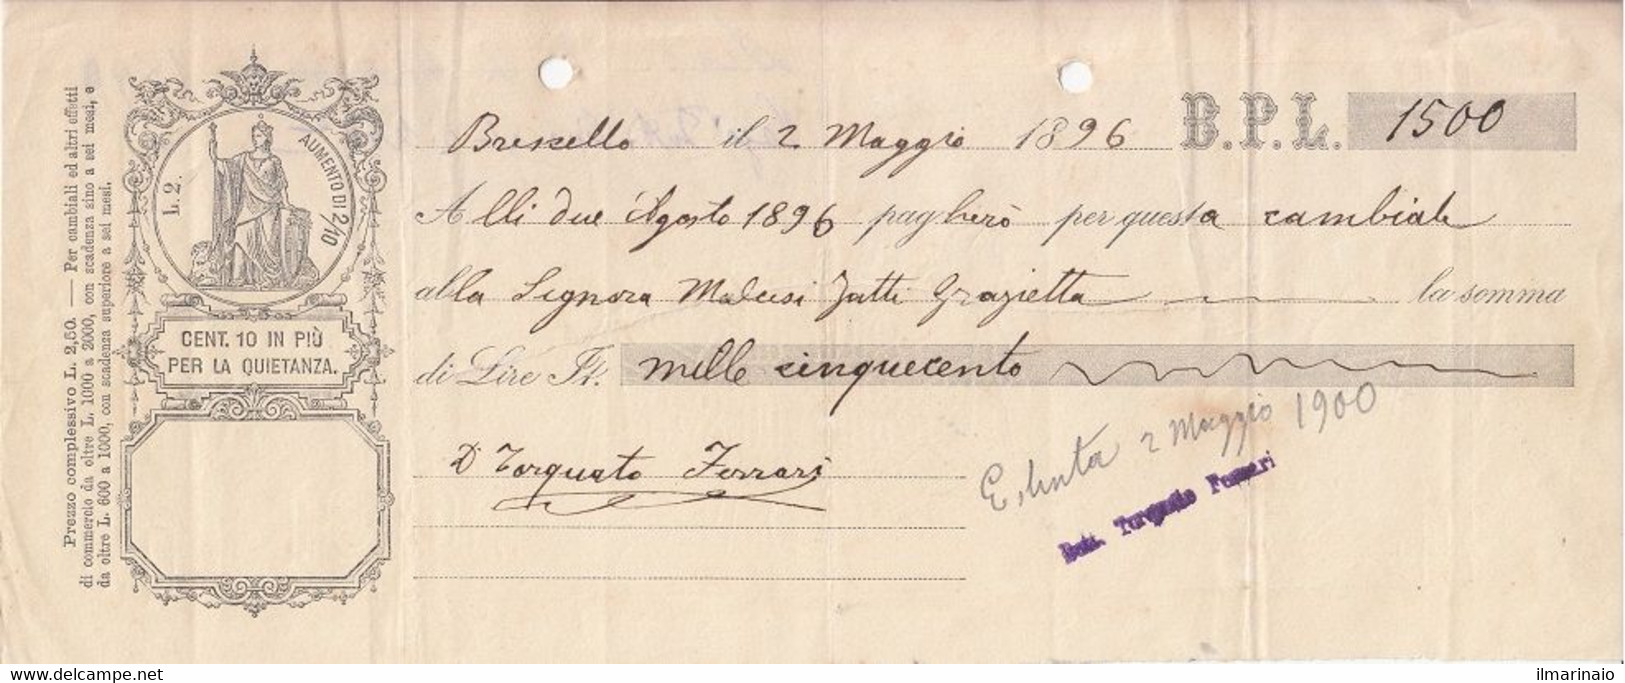 Prezzo complessivo L. 2,50. — Per cambiali ed altri effetti
di commercio da oltre L. 1000 a 2000, con scadenza sino a sei mesi, e
da oltre L. 600 a 1000, con scadenza superiore a sei mesi.
L. 2.
AUMENTO DI 2/10
CENT. 10 IN PIÙ
PER LA QUIETANZA.
Brescello il 2 Maggio 1896 B.P.L. 1500
Alli due Agosto 1896 pagherò per questa cambiale
alla Signora Malusi Jatti Grazietta la somma
di Lire It. mille cinquecento
D Torquato Ferrari
Estinta 2 Maggio 1900
Dott. Torquato Ferrari
delcampe.net
ilmarinaio